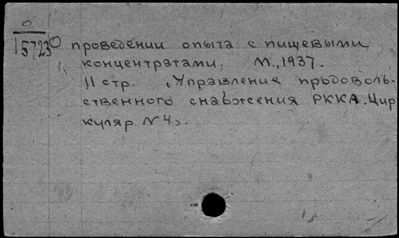 О
15723
О проведении опыта с пищевыми
концентратами. М., 1937.
11 стр. Управление продоволь-
ственного снабжения РККА. Цир
куляр № 43.